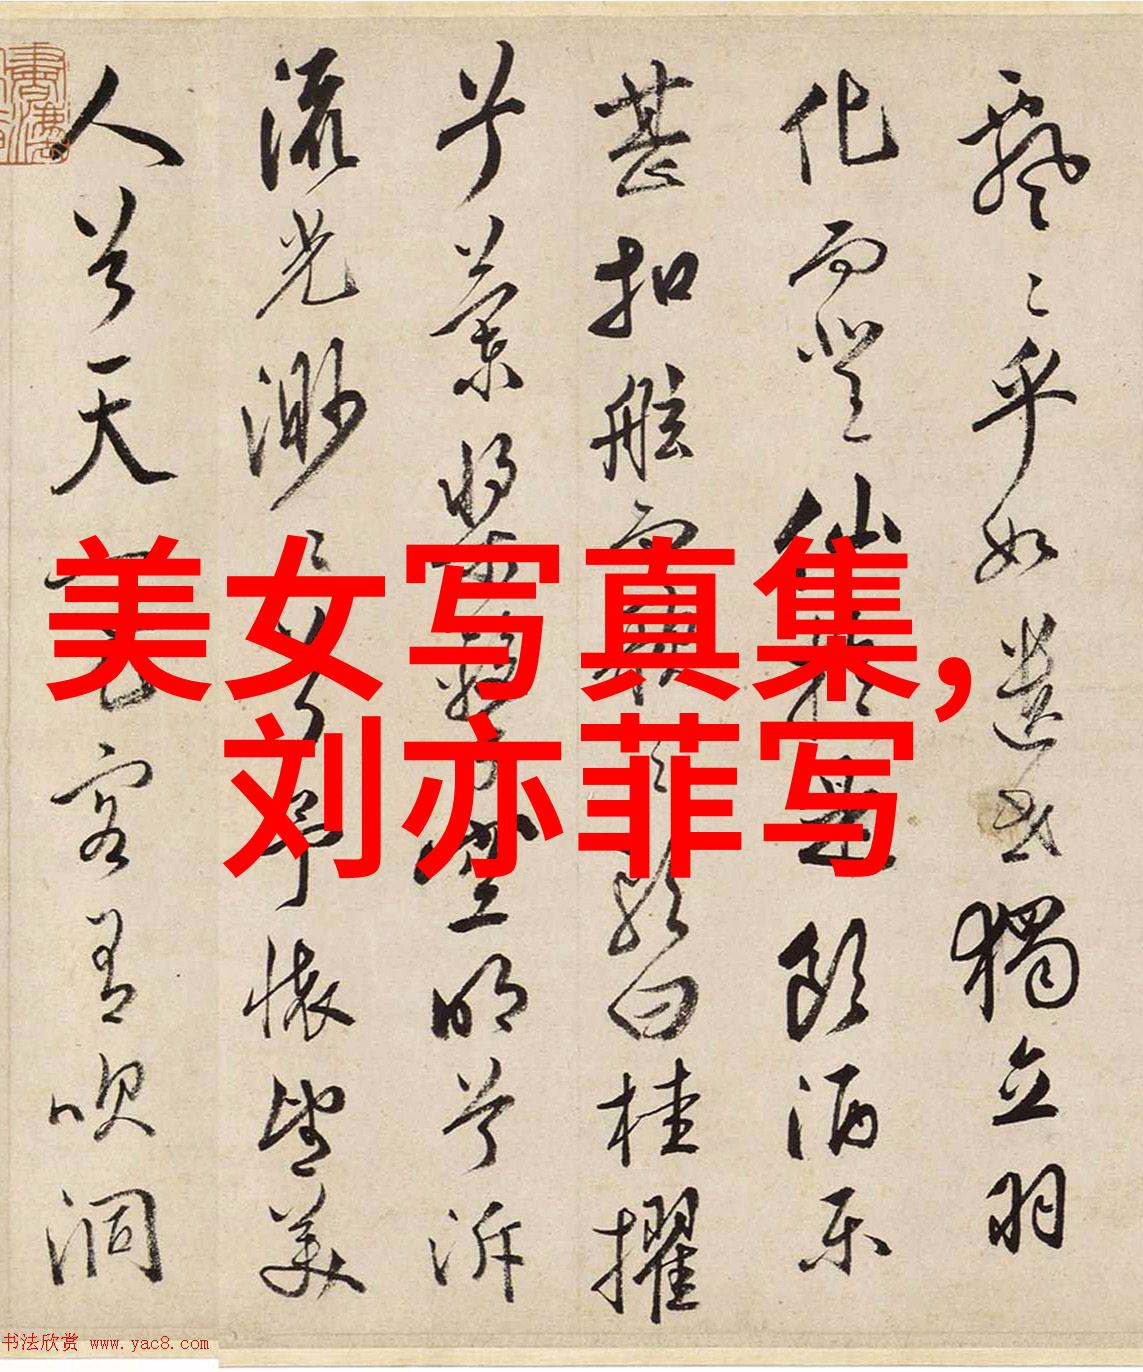 飄〻乎如遺世獨立羽
化而登仙於是飲酒樂
甚扣舷而歌之歌曰桂擢
兮蘭槳擊空明兮泝
流光渺〻兮予懷望美
人兮天一方客有吹洞
美女写真集,
刘亦菲写
书法欣赏 www.yac8.com